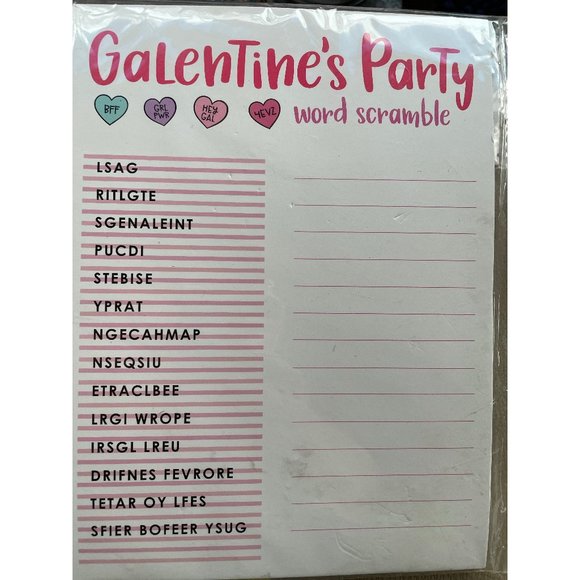 Galentine's Party
BFF GRL PWR HEY GAL 4EVZ word scramble
LSAG
RITLGTE
SGENALEINT
PUCDI
STEBISE
YPRAT
NGECAHMAP
NSEQSIU
ETRACLBEE
LRGI WROPE
IRSGL LREU
DRIFNES FEVRORE
TETAR OY LFES
SFIER BOFEER YSUG